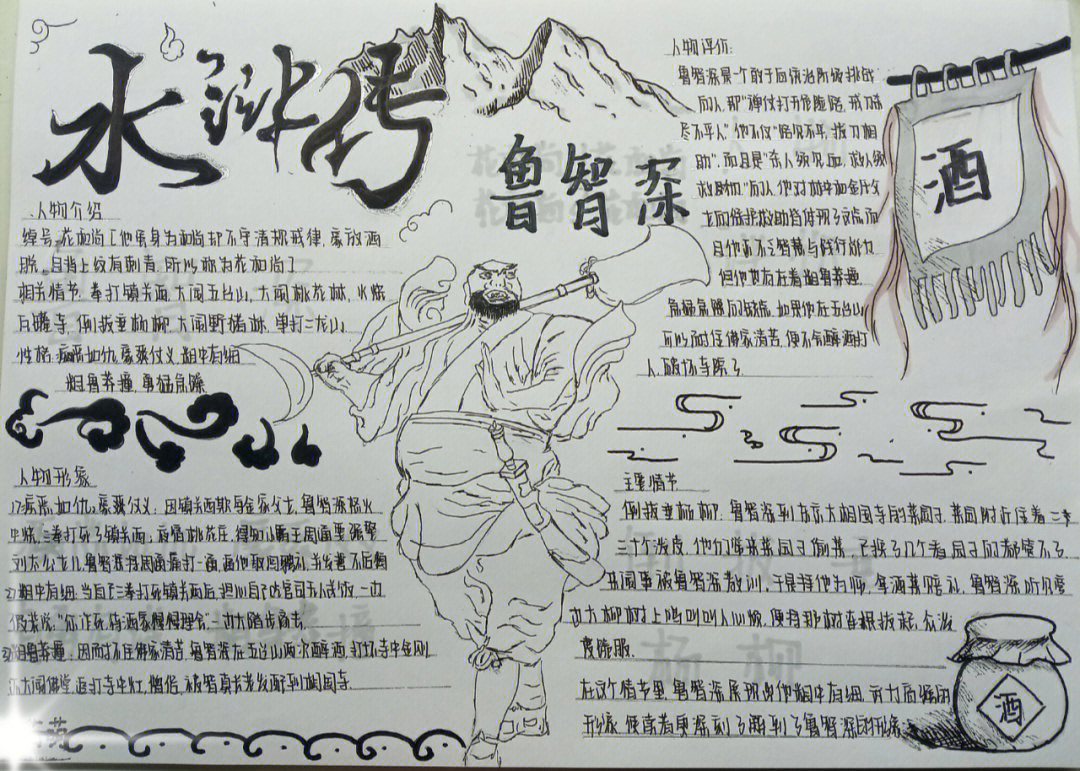 水浒传
鲁智深
人物介绍
绰号:花和尚[他虽身为和尚却不守清规戒律,豪放洒
脱,且背上纹有刺青,所以称为花和尚]
相关情节:拳打镇关西,大闹五台山,大闹桃花村,火烧
瓦罐寺,倒拔垂杨柳,大闹野猪林,单打二龙山
性格:疾恶如仇,豪爽仗义,粗中有细
粗鲁莽撞,勇猛急躁
人物形象
1)疾恶如仇,豪爽仗义:因镇关西欺辱金家父女,鲁智深怒火
中烧,三拳打死了镇关西;夜宿桃花庄,得知小霸王周通要强娶
刘太公女儿,鲁智深将周通痛打一通,
2)粗中有细:当自己三拳打死镇关西后,担心自己吃官司无人送饭,一边
假装说,"你诈死,待洒家慢慢理会",一边大踏步离去
3)粗鲁莽撞:因耐不住佛家清苦,鲁智深在五台山两次醉酒,打坏寺中金刚
大闹佛堂,追打寺中 僧侣,被智真长老发配到相国寺.
人物评价:
鲁智深是一个敢于向统治阶级挑战
的人,那"禅仗打开危险路,戒刀杀
尽不平人"他不仅"路见不平,拔刀相
助",而且是"杀人须见血,救人须
救彻"的人,他对林冲和金氏父
女的保护救助皆体现了这点,而
且他亦不乏智慧与践行能力
但他也存在着粗鲁莽撞
急猛急躁的缺点,如果他在五台山
可以耐住佛家清苦,便不会醉酒打
人,破坏寺院了
酒
主要情节
倒拔垂杨柳:鲁智深到东京大相国寺的菜园子,菜园附近住着二
三十个泼皮,他们常来菜园子偷菜,已换了几个看园子的都管不了
被鲁智深教训,于是拜他为师,拿酒菜赔礼,鲁智深听见旁
边大柳树上鸣叫叫人心烦,便将那树连根拔起,众泼
皮臣服.
在这个情节里,鲁智深展现出他粗中有细,孔力而强的
形象,使读者更深刻了解到了鲁智深的形象
酒